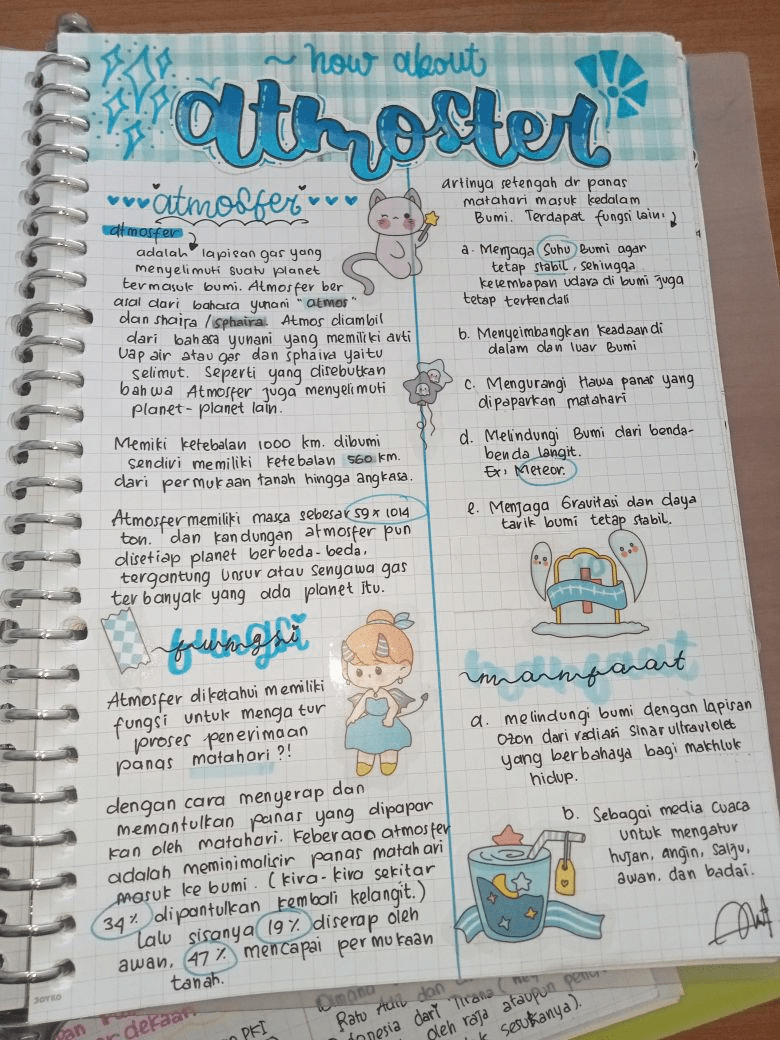 ~ how about
atmosfer
atmosfer
atmosfer
adalah lapisan gas yang
menyelimuti suatu planet
termasuk bumi. Atmosfer ber
asal dari bahasa yunani "atmos"
dan shaira / sphaira. Atmos diambil
dari bahasa yunani yang memiliki arti
Uap air atau gas dan sphaira yaitu
selimut. Seperti yang disebutkan
bahwa Atmosfer juga menyelimuti
planet-planet lain.
Memiki ketebalan 1000 km. dibumi
sendiri memiliki ketebalan 560 km.
dari permukaan tanah hingga angkasa.
Atmosfer memiliki massa sebesar 59 x 1014
ton. dan kandungan atmosfer pun
disetiap planet berbeda-beda,
tergantung unsur atau senyawa gas
terbanyak yang ada planet itu.
fungsi
Atmosfer diketahui memiliki
fungsi untuk mengatur
proses penerimaan
panas matahari?!
dengan cara menyerap dan
memantulkan panas yang dipapar
kan oleh matahari. Keberaaan atmosfer
adalah meminimalisir panas matahari
masuk ke bumi. (kira-kira sekitar
34% dipantulkan kembali kelangit.)
lalu sisanya 19% diserap oleh
awan, 47% mencapai permukaan
tanah.
artinya setengah dr panas
matahari masuk kedalam
Bumi. Terdapat fungsi lain:
a. Menjaga Suhu Bumi agar
tetap stabil, sehingga
kelembapan udara di bumi juga
tetap terkendali
b. Menyeimbangkan Keadaan di
dalam dan luar Bumi
c. Mengurangi Hawa panas yang
dipaparkan matahari
d. Melindungi Bumi dari benda-
benda langit.
Ex: Meteor.
e. Menjaga Gravitasi dan daya
tarik bumi tetap stabil.
manfaat
a. melindungi bumi dengan lapisan
Ozon dari radiasi Sinar ultraviolet
yang berbahaya bagi makhluk
hidup.
b. Sebagai media Cuaca
untuk mengatur
hujan, angin, salju,
awan, dan badai.
JOYKO
dekaan
PKI
Dimana
Ratu Adil dan
donesia dari Tirana
oleh raja ataupun
sesukanya).